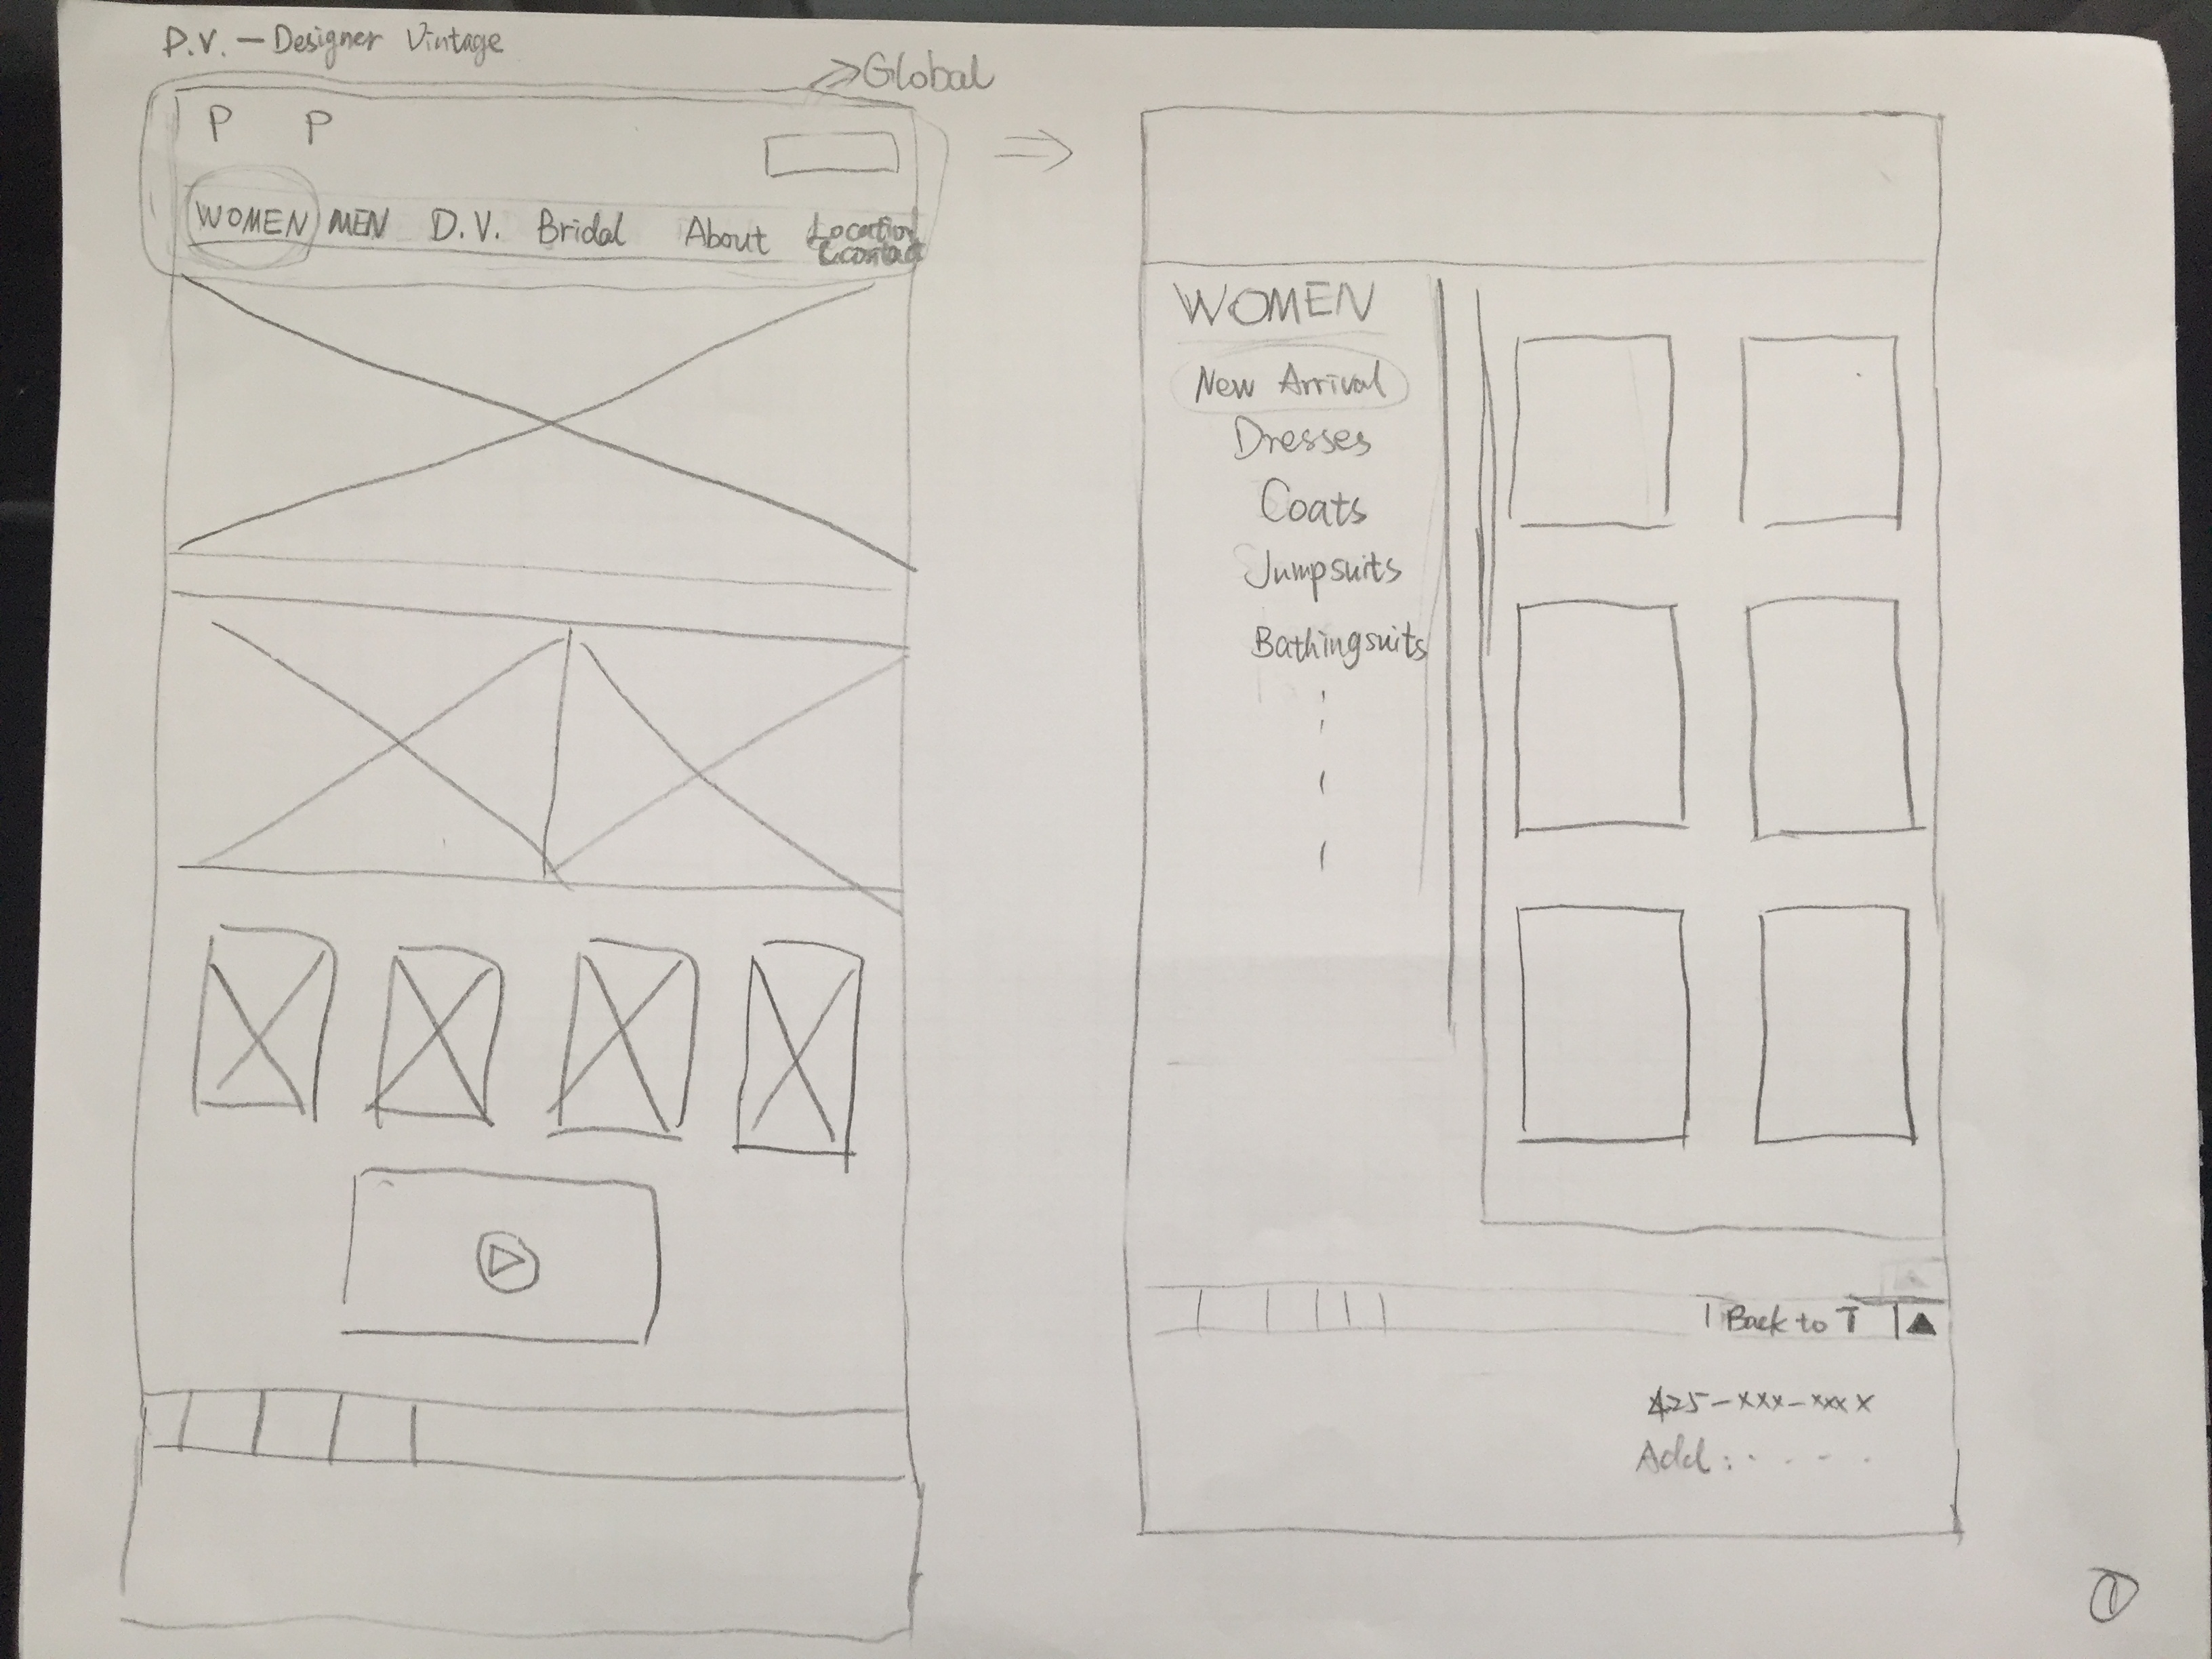 D.V. — Designer Vintage
Global
P P
WOMEN MEN D.V. Bridal About Location
&contact
WOMEN
New Arrival
Dresses
Coats
Jumpsuits
Bathingsuits
Back to T
425-xxx-xxxx
Add:
1